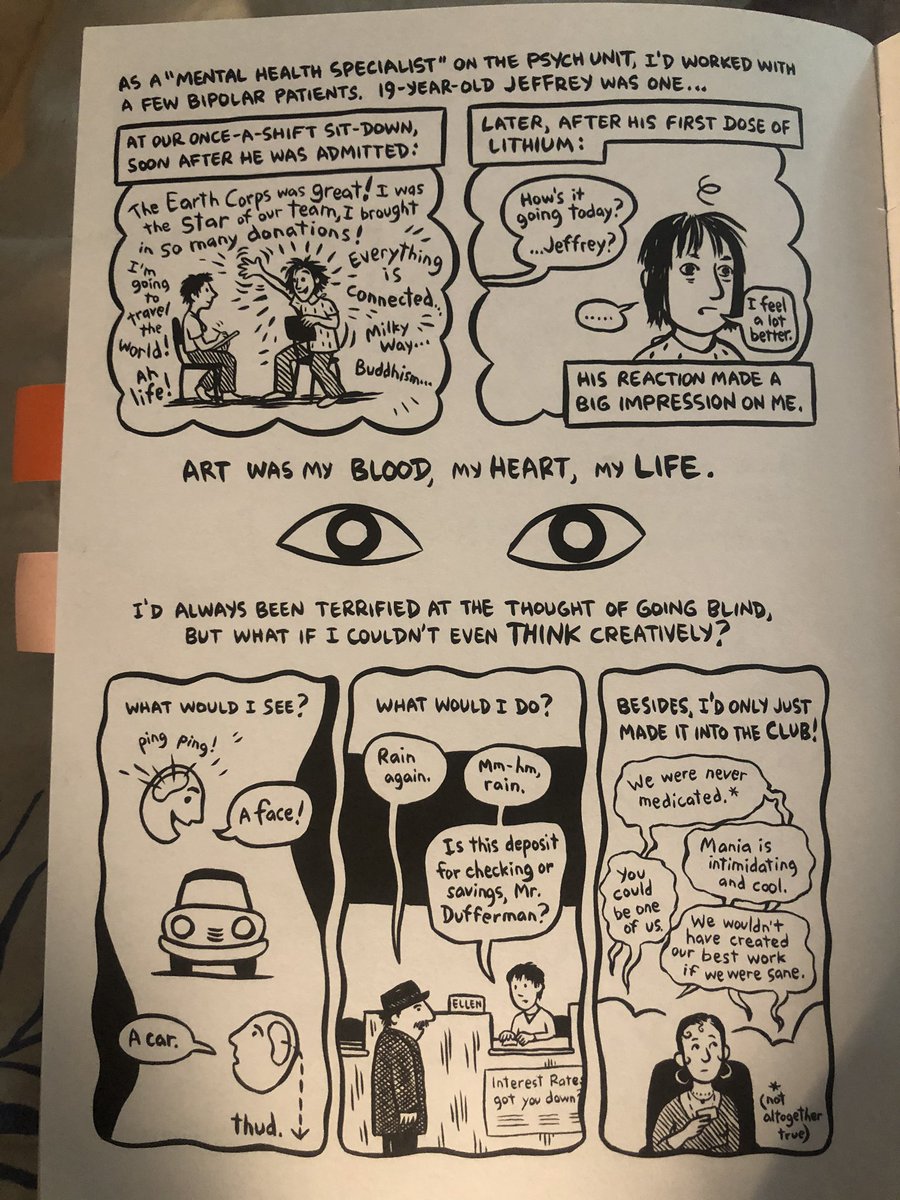 AS A "MENTAL HEALTH SPECIALIST" ON THE PSYCH UNIT, I'D WORKED WITH
A FEW BIPOLAR PATIENTS. 19-YEAR-OLD JEFFREY WAS ONE...
AT OUR ONCE-A-SHIFT SIT-DOWN,
SOON AFTER HE WAS ADMITTED:
The Earth Corps was great! I was
the Star of our team, I brought
in so many donations!
I'm
going
to
travel
the
world!
Ah
life!
Everything
is
connected...
Milky
Way...
Buddhism...
LATER, AFTER HIS FIRST DOSE OF
LITHIUM:
How's it
going today?
...Jeffrey?
.....
I feel
a lot
better.
HIS REACTION MADE A
BIG IMPRESSION ON ME.
ART WAS MY BLOOD, MY HEART, MY LIFE.
I'D ALWAYS BEEN TERRIFIED AT THE THOUGHT OF GOING BLIND,
BUT WHAT IF I COULDN'T EVEN THINK CREATIVELY?
WHAT WOULD I SEE?
ping ping!
A face!
A car.
thud.
WHAT WOULD I DO?
Rain
again.
Mm-hm,
rain.
Is this deposit
for checking or
savings, Mr.
Dufferman?
ELLEN
Interest Rates
got you down?
BESIDES, I'D ONLY JUST
MADE IT INTO THE CLUB!
We were never
medicated.*
Mania is
intimidating
and cool.
You
could
be one
of us.
We wouldn't
have created
our best work
if we were sane.
*
(not
altogether
true)